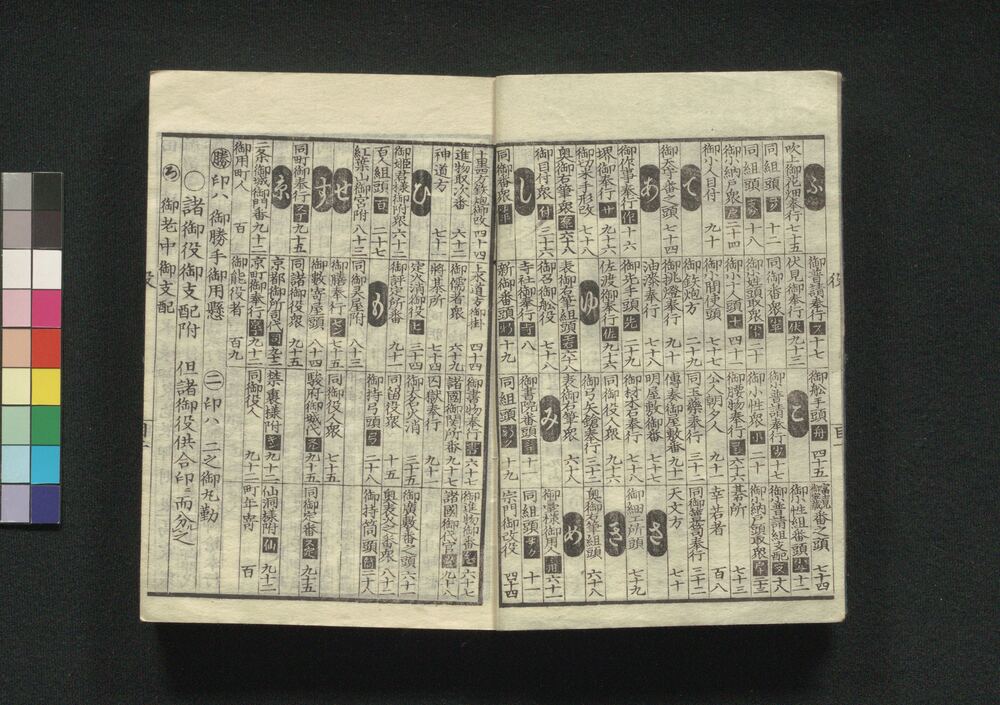 ふ
吹上御花畑奉行 七十五
同組頭 十二
同組頭 十八
御小納戸衆 二十四
御小人目付 九十
て
御天守番之頭 七十四
あ
御作事奉行 作 十六
堺御奉行 サ 九十六
御切米手形改 七十一
奥御右筆衆 六十八
御目付衆 付 三十六
し
同御番衆
御普請奉行 フ 十七
伏見御奉行 伏 九十三
同御番衆
御小姓頭取衆
御小人頭 十 四十一
御小間使頭 七十七
御鉄炮方 二十九
御挑燈奉行 七十八
油漆奉行 七十八
御先手頭 先 二十九
佐渡御奉行 佐 九十六
ゆ
表御右筆組頭 六十八
御召御舩役 七十八
寺社御奉行 寺 八
新御番頭 十九
御舩手頭 舟 四十五
こ
小普請奉行 十七
御小性衆 小
御腰物奉行 六十六
公人朝夕人 九十
同玉薬奉行 三十二
傳奏御屋敷番 九十二
明屋敷御番 七十七
御材木石奉行 七十八
同御役人衆 九十六
御弓矢鎗奉行 三十二
表御右筆衆 六十八
み
御書院番頭 十一
同組頭 十九
富士見御宝蔵番之頭 七十四
御小性組番頭 十二
小普請組支配
御小納戸頭取衆 二十三
碁所 七十三
幸若者 百八
同御薬薗奉行 三十三
天文方 七十
さ
御細工所頭 七十九
き
奥御右筆組頭 六十八
め
御用人 六十二
同組頭 十一
宗門御改役 四十四
鉄炮御改 四十四
進物取次番 六十二
神道方 七十一
ひ
御姫君様御附衆 六十二
百人組頭 百 二十七
紅葉山御宮附 八十三
せ
す
同町御奉行 九十五
京
二条御城御門番 九十二
御用町人 百
上水道方御掛 四十四
御儒者衆 六十九
將棊所 七十四
定火消御役 ヒ 三十四
御評定所番 九十一
も
同御灵屋附 八十三
御膳奉行 セン 七十五
御數寄屋頭 八十四
同諸御役衆 九十五
京都御所司代 司 九十二
京町御奉行 九十二
御能役者 百九
御書物奉行 六十七
諸國御関所番 九十七
囚獄奉行 九十一
御大名火消 三十四
同留役衆 十五
御持弓頭 弓 二十八
同御役人衆 七十五
駿府御城代 九十五
禁裏様附 キン 九十二
同御役人 九十二
御進物御番 六十七
諸國御代官 九十八
御廣敷番之頭 六十三
奥表火之番 八十二
御持筒頭 筒 二十八
同御定番 九十五
仙洞様附 仙 九十二
町年寄 百
勝 印ハ 御勝手御用懸 二 印ハ 二之御丸勤
○諸御役御支配附 但諸御役供合印ニ而分之
ろ 御老中御支配